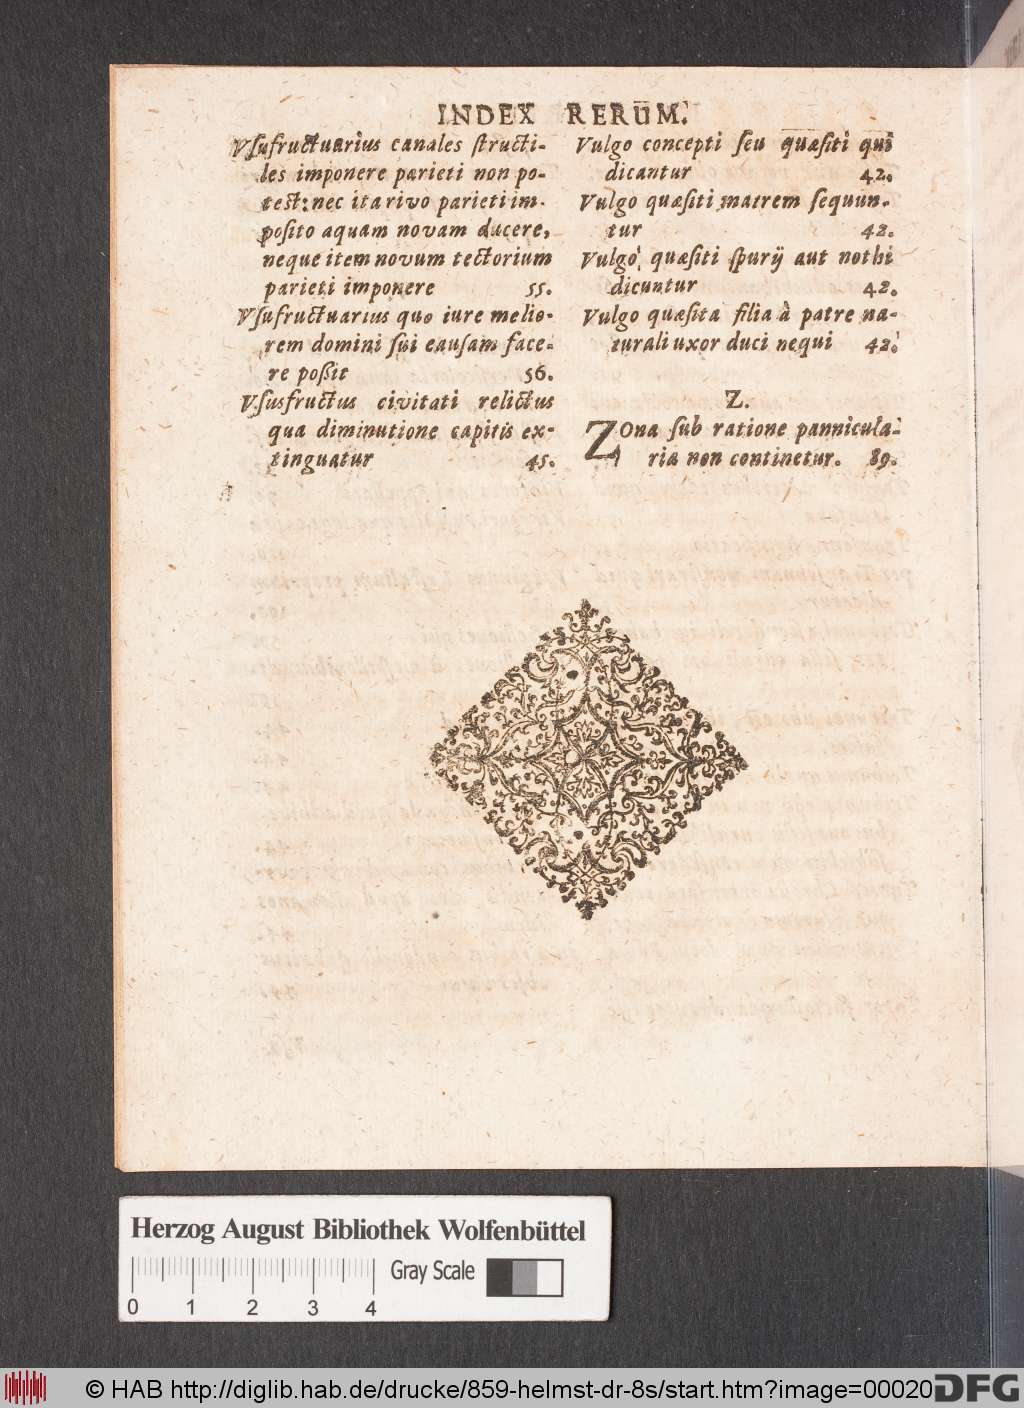 INDEX RERUM.
Vſufructuarius canales ſtructi-
les imponere parieti non po-
test: nec ita rivo parieti im-
poſito aquam novam ducere,
neque item novum tectorium
parieti imponere 55.
Vſufructuarius quo iure melio-
rem domini ſui cauſam face-
re poßit 56.
Vſusfructus civitati relictus
qua diminutione capitis ex-
tinguatur 45.
Vulgo concepti ſeu quæſiti qui
dicantur 42.
Vulgo quæſiti matrem ſequun-
tur 42.
Vulgo quæſiti ſpurij aut nothi
dicuntur 42.
Vulgo quæſita filia à patre na-
turali uxor duci nequi 42.
Z.
ZOna ſub ratione pannicula-
ria non continetur. 89.
Herzog August Bibliothek Wolfenbüttel
Gray Scale
0 1 2 3 4
© HAB http://diglib.hab.de/drucke/859-helmst-dr-8s/start.htm?image=00020
DFG